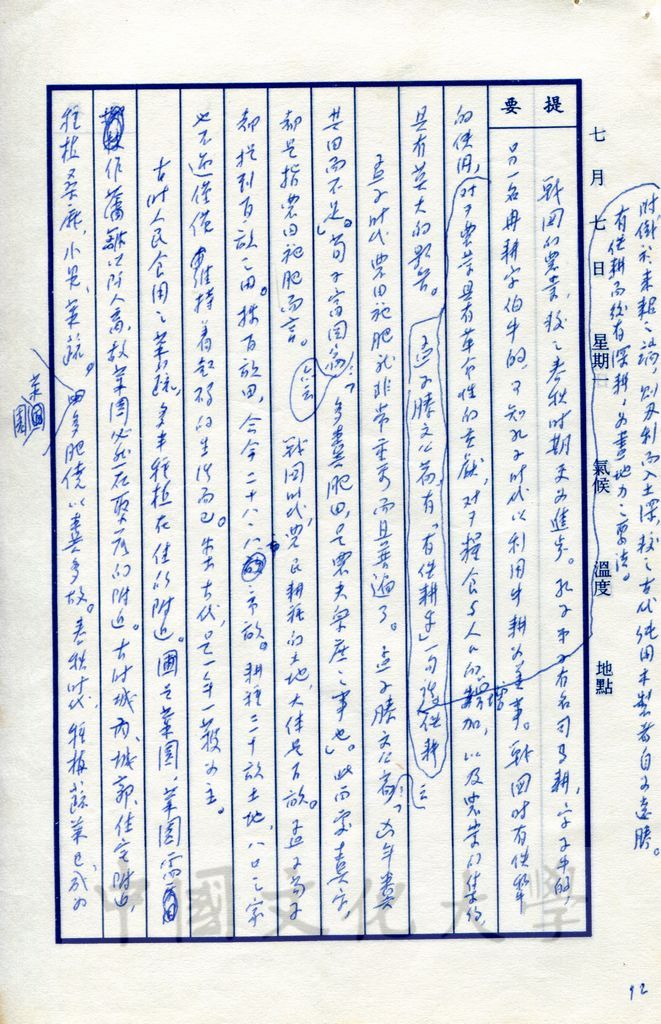 附鐵於耒耜之端，則刃利而入土深，較之古代純用木製者自是遠勝。
有鐵耕而後有深耕，為盡地力之要法。
七月七日 星期 氣候 溫度 地點
提要
戰國的農業，較之春秋時期更為進步。孔子弟子有名司馬耕，字子牛的，
另一名冉耕字伯牛的，可知孔子時代以利用牛耕為美事。戰國時有鐵犂
的使用，對于農業具有革命性的貢獻，對于糧食與人口的增加，以及農業的集約
具有莫大的影響。孟子滕文公篇有「有鐵耕乎」一句。鐵耕之
孟子時代農田施肥就非常重要而且普遍了。孟子滕文公篇：「凶年糞
其田而不足」。荀子富國篇：「多糞肥田，是農夫眾庶之事也」。此兩處糞字，
都是指農田施肥而言。戰國時代，農民耕種的土地，大體是百畝。孟子荀子
都提到百畝之田。按百畝田，合今二十八．八市畝。耕種二十畝土地，八口之家
也不過僅僅維持著起碼的生活而已。朱古代，是一年一穫為主。
古時人民食用之菜蔬，多半種植在住的附近。圃是菜園，菜園需
作藩籬以防人畜，故菜園必然在聚落的附近。古時城內、城郭、住宅附近，
種植桑麻，小果，菜蔬。菜園田多肥饒以糞多故。春秋時代，種植蔬菜已成為
92
中國文化大學